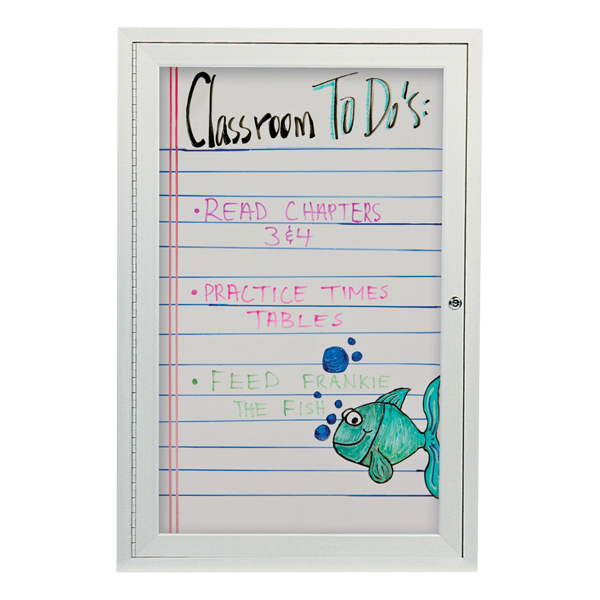 Classroom To Do's:
• READ CHAPTERS
3 & 4
• PRACTICE TIMES
TABLES
• FEED FRANKIE
THE FISH